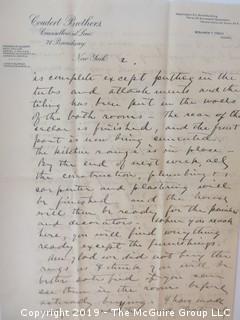 Coudert Brothers,
Counsellors at Law
71 Broadway
New York
2.
is complete except putting in the
tubs and attachments and the
tiling has been put in the walls
of the bath rooms - the rear of the
cellar is finished, and the front
part is now being cemented.
The kitchen range is in place -
By the end of next week, all
the construction, plumbing &
carpenter and plastering will
be finished and the house
will then be ready for the painter
and decorators - When you reach
here, you will find everything
ready except the furnishings.
Am glad we did not buy the
rugs as I think you will be
better satisfied if you can
see them in the rooms before
actually buying. I have made
Copyright 2019 - The McGuire Group LLC